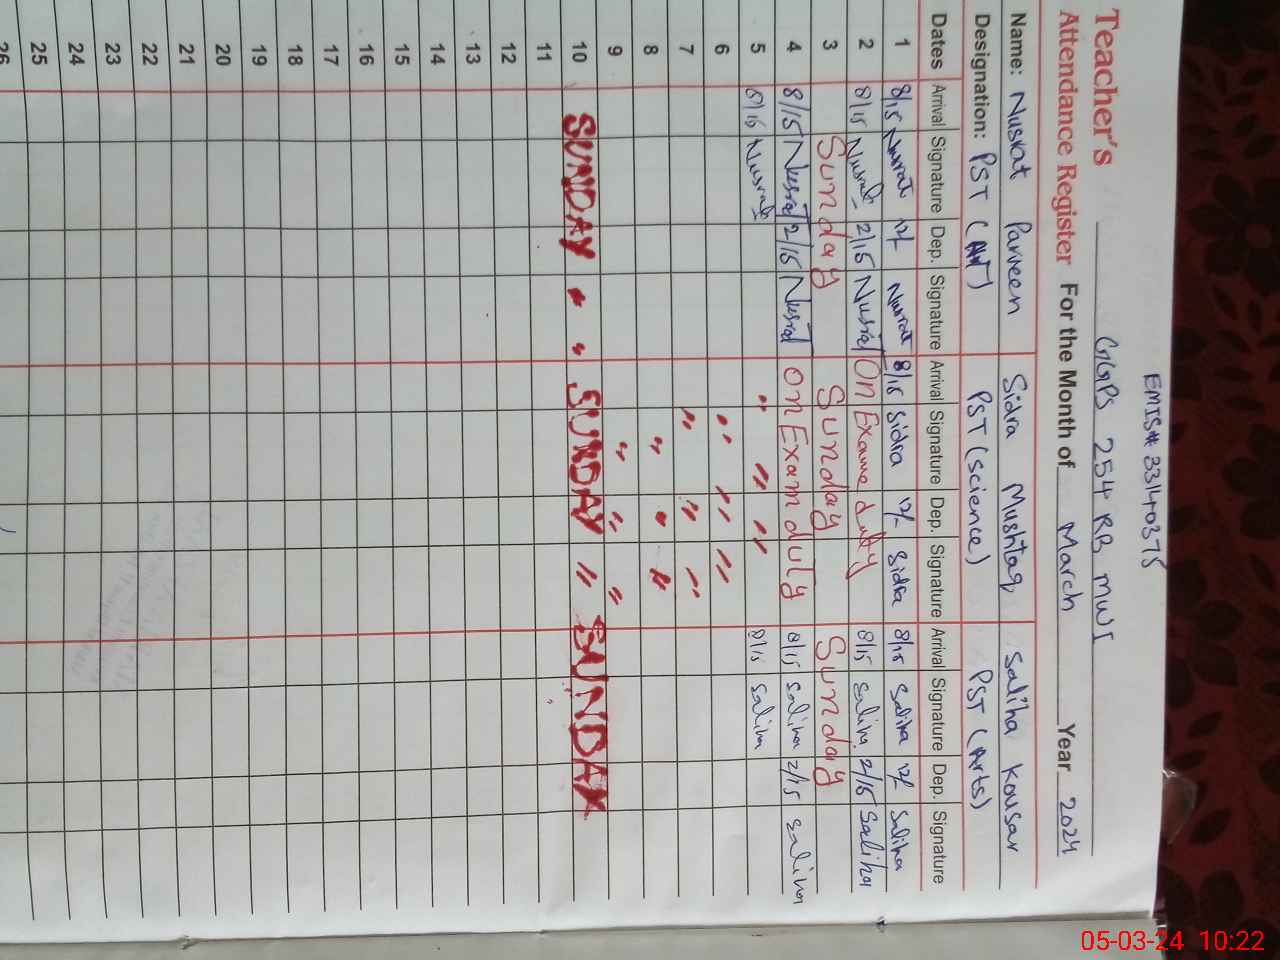 EMIS# 33140375
Teacher's GGPS 254 RB MWI
Attendance Register For the Month of March Year 2024
Name: Nusrat Parveen Sidra Mushtaq Saliha Kousar
Designation: PST ( ) PST (science) PST (Arts)
Dates Arrival Signature Dep. Signature Arrival Signature Dep. Signature Arrival Signature Dep. Signature
1 8/15 Nusrat 12/- Nusrat 8/15 Sidra 12/- Sidra 8/15 Saliha 12/- Saliha
2 8/15 Nusrat 2/15 Nusrat On Exame duty 8/15 Saliha 2/15 Saliha
3 Sunday Sunday Sunday
4 8/15 Nusrat 2/15 Nusrat on Exam duty 8/15 Saliha 2/15 Saliha
5 8/15 Nusrat " " " 8/15 Saliha
6 " " "
7 " " "
8 " " "
9 " " "
10 SUNDAY " " SUNDAY " SUNDAY
11
12
13
14
15
16
17
18
19
20
21
22
23
24
25
26
05-03-24 10:22